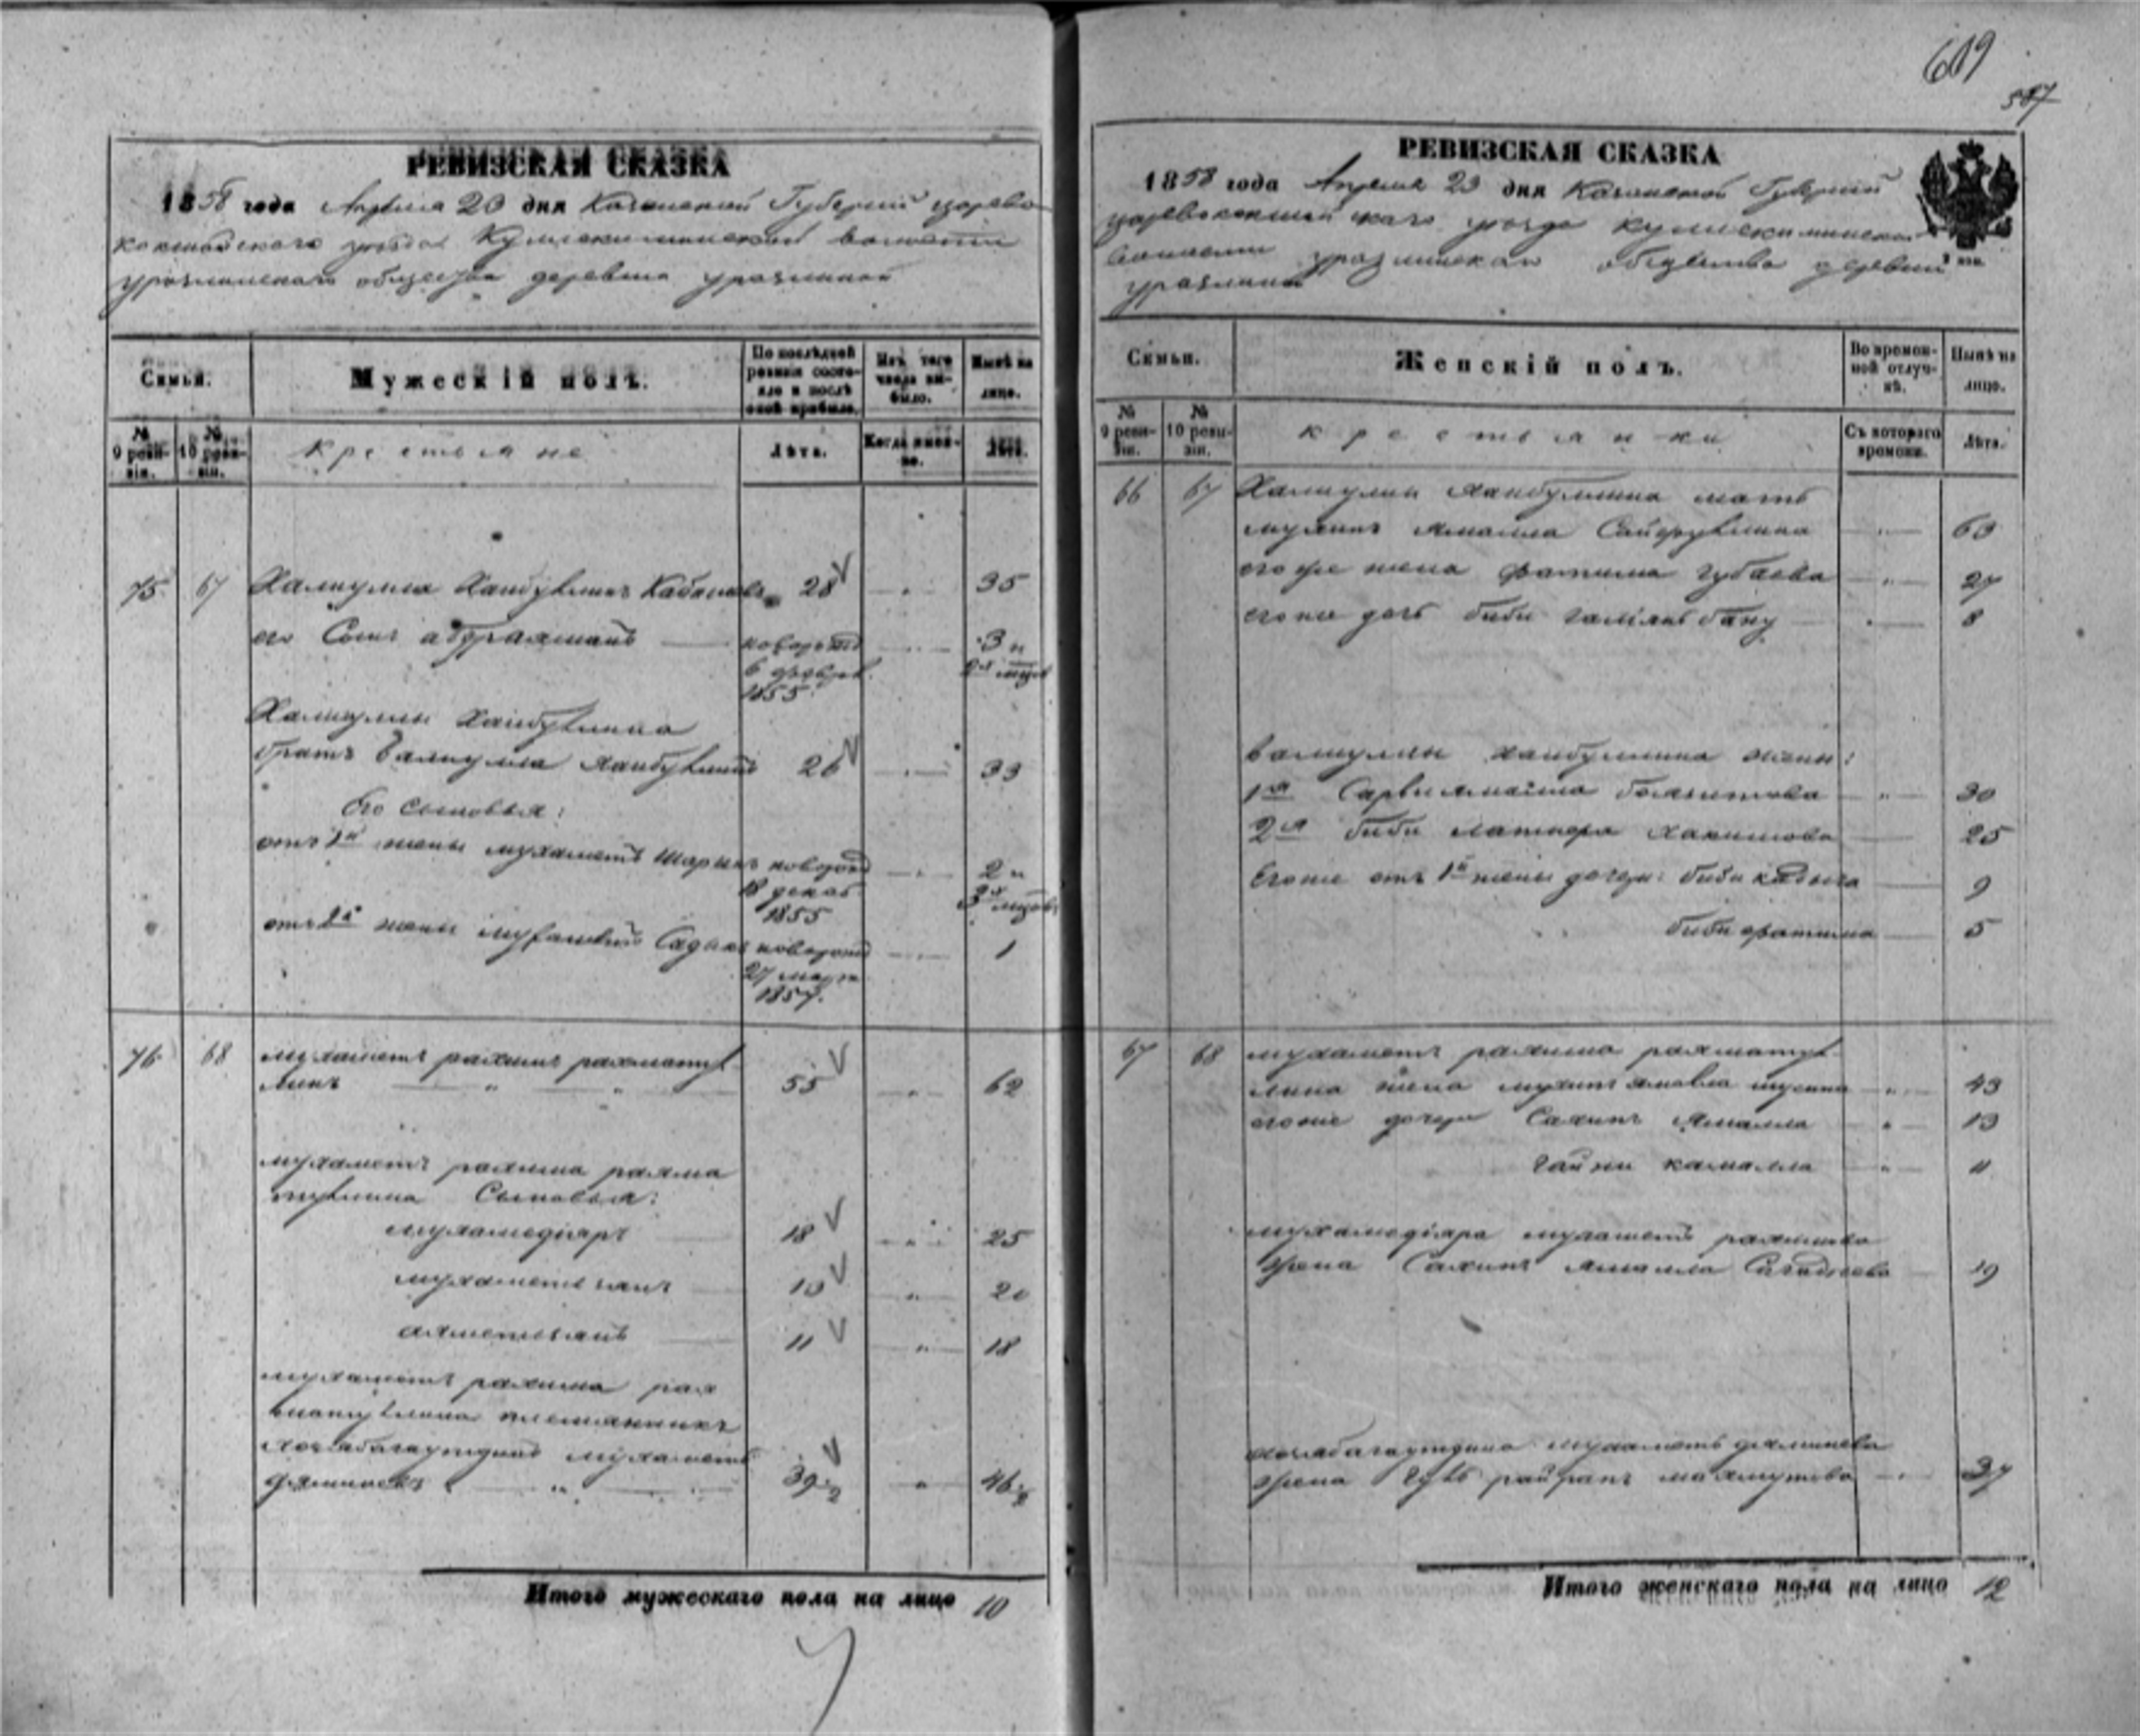 619
587
РЕВИЗСКАЯ СКАЗКА
1858 года Апреля 23 дня Казанской Губернии царево
кокшайского уезда Кулле-киминской волости
уразлинского общества деревни уразлиной
Семьи.
Мужескій полъ.
По послѣдней ревизіи состояло и послѣ оной прибыло.
Изъ того числа выбыло.
Нынѣ на лицо.
№ 9 ревизіи.
№ 10 ревизіи.
крестьяне
Лѣта.
Когда именно.
Лѣта.
75 67 Халиулла Хайбуллинъ Кабановъ 28 35
его Сынъ абдрахманъ новорожд 3 и
6 феврал. 2х мцов
1855
Халиуллы Хайбуллина
братъ Валиулла хайбуллинъ 26 33
Его сыновья:
отъ 1й жены мухаметь шарипъ новорожд 2 и
18 декаб
1855
отъ 2й жены мухаметь Садыкъ новорожд 1
27 марта
1857.
76 68 мухаметъ рахимъ рахматул
линъ 55 62
мухаметъ рахима рахма
туллина Сыновья:
мухамедіяръ 18 25
мухаметьянъ 13 20
ахметьянъ 11 18
мухаметъ рахима рах
матуллина племянникъ
мухаметь 39 46
Итого мужескаго пола на лицо 10
РЕВИЗСКАЯ СКАЗКА
1858 года Апреля 23 дня Казанской Губернии
царевококшайскаго уезда куллекиминской
волости уразлинскаго общества деревни
уразлиной
Семьи.
Женскій полъ.
Во временной отлучкѣ.
Нынѣ на лицо.
№ 9 ревизіи.
№ 10 ревизіи.
крестьянки
Съ котораго времени.
Лѣта.
66 67 Халиуллы хайбуллина мать
Сайфуллина 63
его же жена фатима губаева 27
его же дочь биби бану 8
валиуллы хайбуллина жены:
1я 30
2я биби хакимова 25
Его же отъ 1й жены дочери: биби 9
биби фатима 5
67 68 мухаметъ рахима рахматул
лина жена 43
его же дочери Сахипъ Ямалла 13
камалла 11
мухамедіяра мухаметь рахимова
жена Сахипъ ямалла 19
мухаметь
жена махмутова 37
Итого женскаго пола на лицо 12